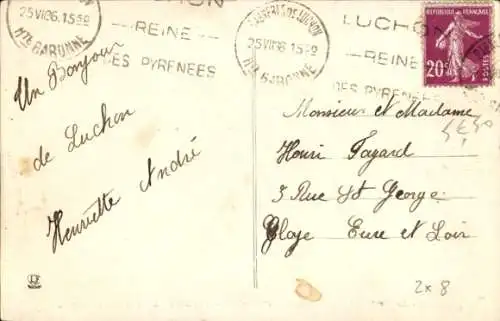 25 VII 36. 1559
Hte GARONNE
LUCHON
REINE
DES PYRENEES
DE LUCHON
25 VII 36 1559
Hte GARONNE
LUCHON
REINE
DES PYRENEES
REPUBLIQUE FRANÇAISE
20c
Un Bonjour
de Luchon
Henriette André
Monsieur et Madame
Henri Fayard
3 Rue St George
Cloye Eure et Loir
2x8